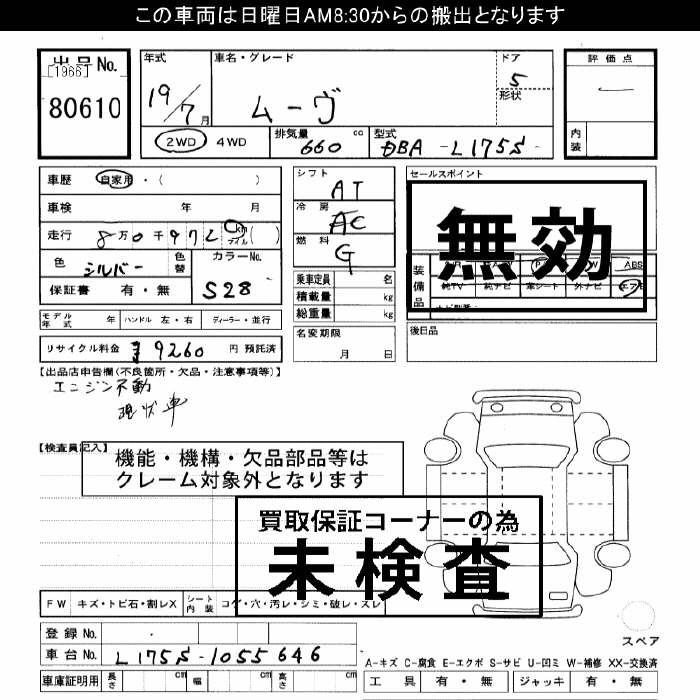 この車両は日曜日AM8:30からの搬出となります
出品No.
[1966]
80610
年式 車名・グレード ドア 評価点
19/7月 ムーヴ 5
形状
2WD 4WD 排気量 660 cc 型式 DBA-L175S- 内装
車歴 自家用・( )
車検 年 月
走行 8万0千972 km マイル ( )
色 シルバー 色替 カラーNo. S28
保証書 有・無
シフト AT
冷房 AC
燃料 G
乗車定員 名
積載量 kg
総重量 kg
セールスポイント
無効
装備品 ABS
純TV 純ナビ 革シート 外ナビ
モデル年式 年 ハンドル 左・右 ディーラー・並行
名変期限 月 日
後日品
リサイクル料金 ¥9260 円 預託済
【出品店申告欄(不良箇所・欠品・注意事項等)】
エンジン不動
現状車
【検査員記入】
機能・機構・欠品部品等は
クレーム対象外となります
買取保証コーナーの為
未検査
FW キズ・トビ石・割レX シート内装 コゲ・穴・汚レ・シミ・破レ・スレ
登録No.
車台No. L175S-1055646
スペア
A-キズ C-腐食 E-エクボ S-サビ U-凹ミ W-補修 XX-交換済
車庫証明用 長さ cm 幅 cm 高さ cm 工具 有・無 ジャッキ 有・無